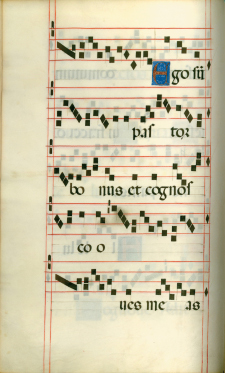 Ego sū
pas tor
bo nus et cognos
co o
ues me as